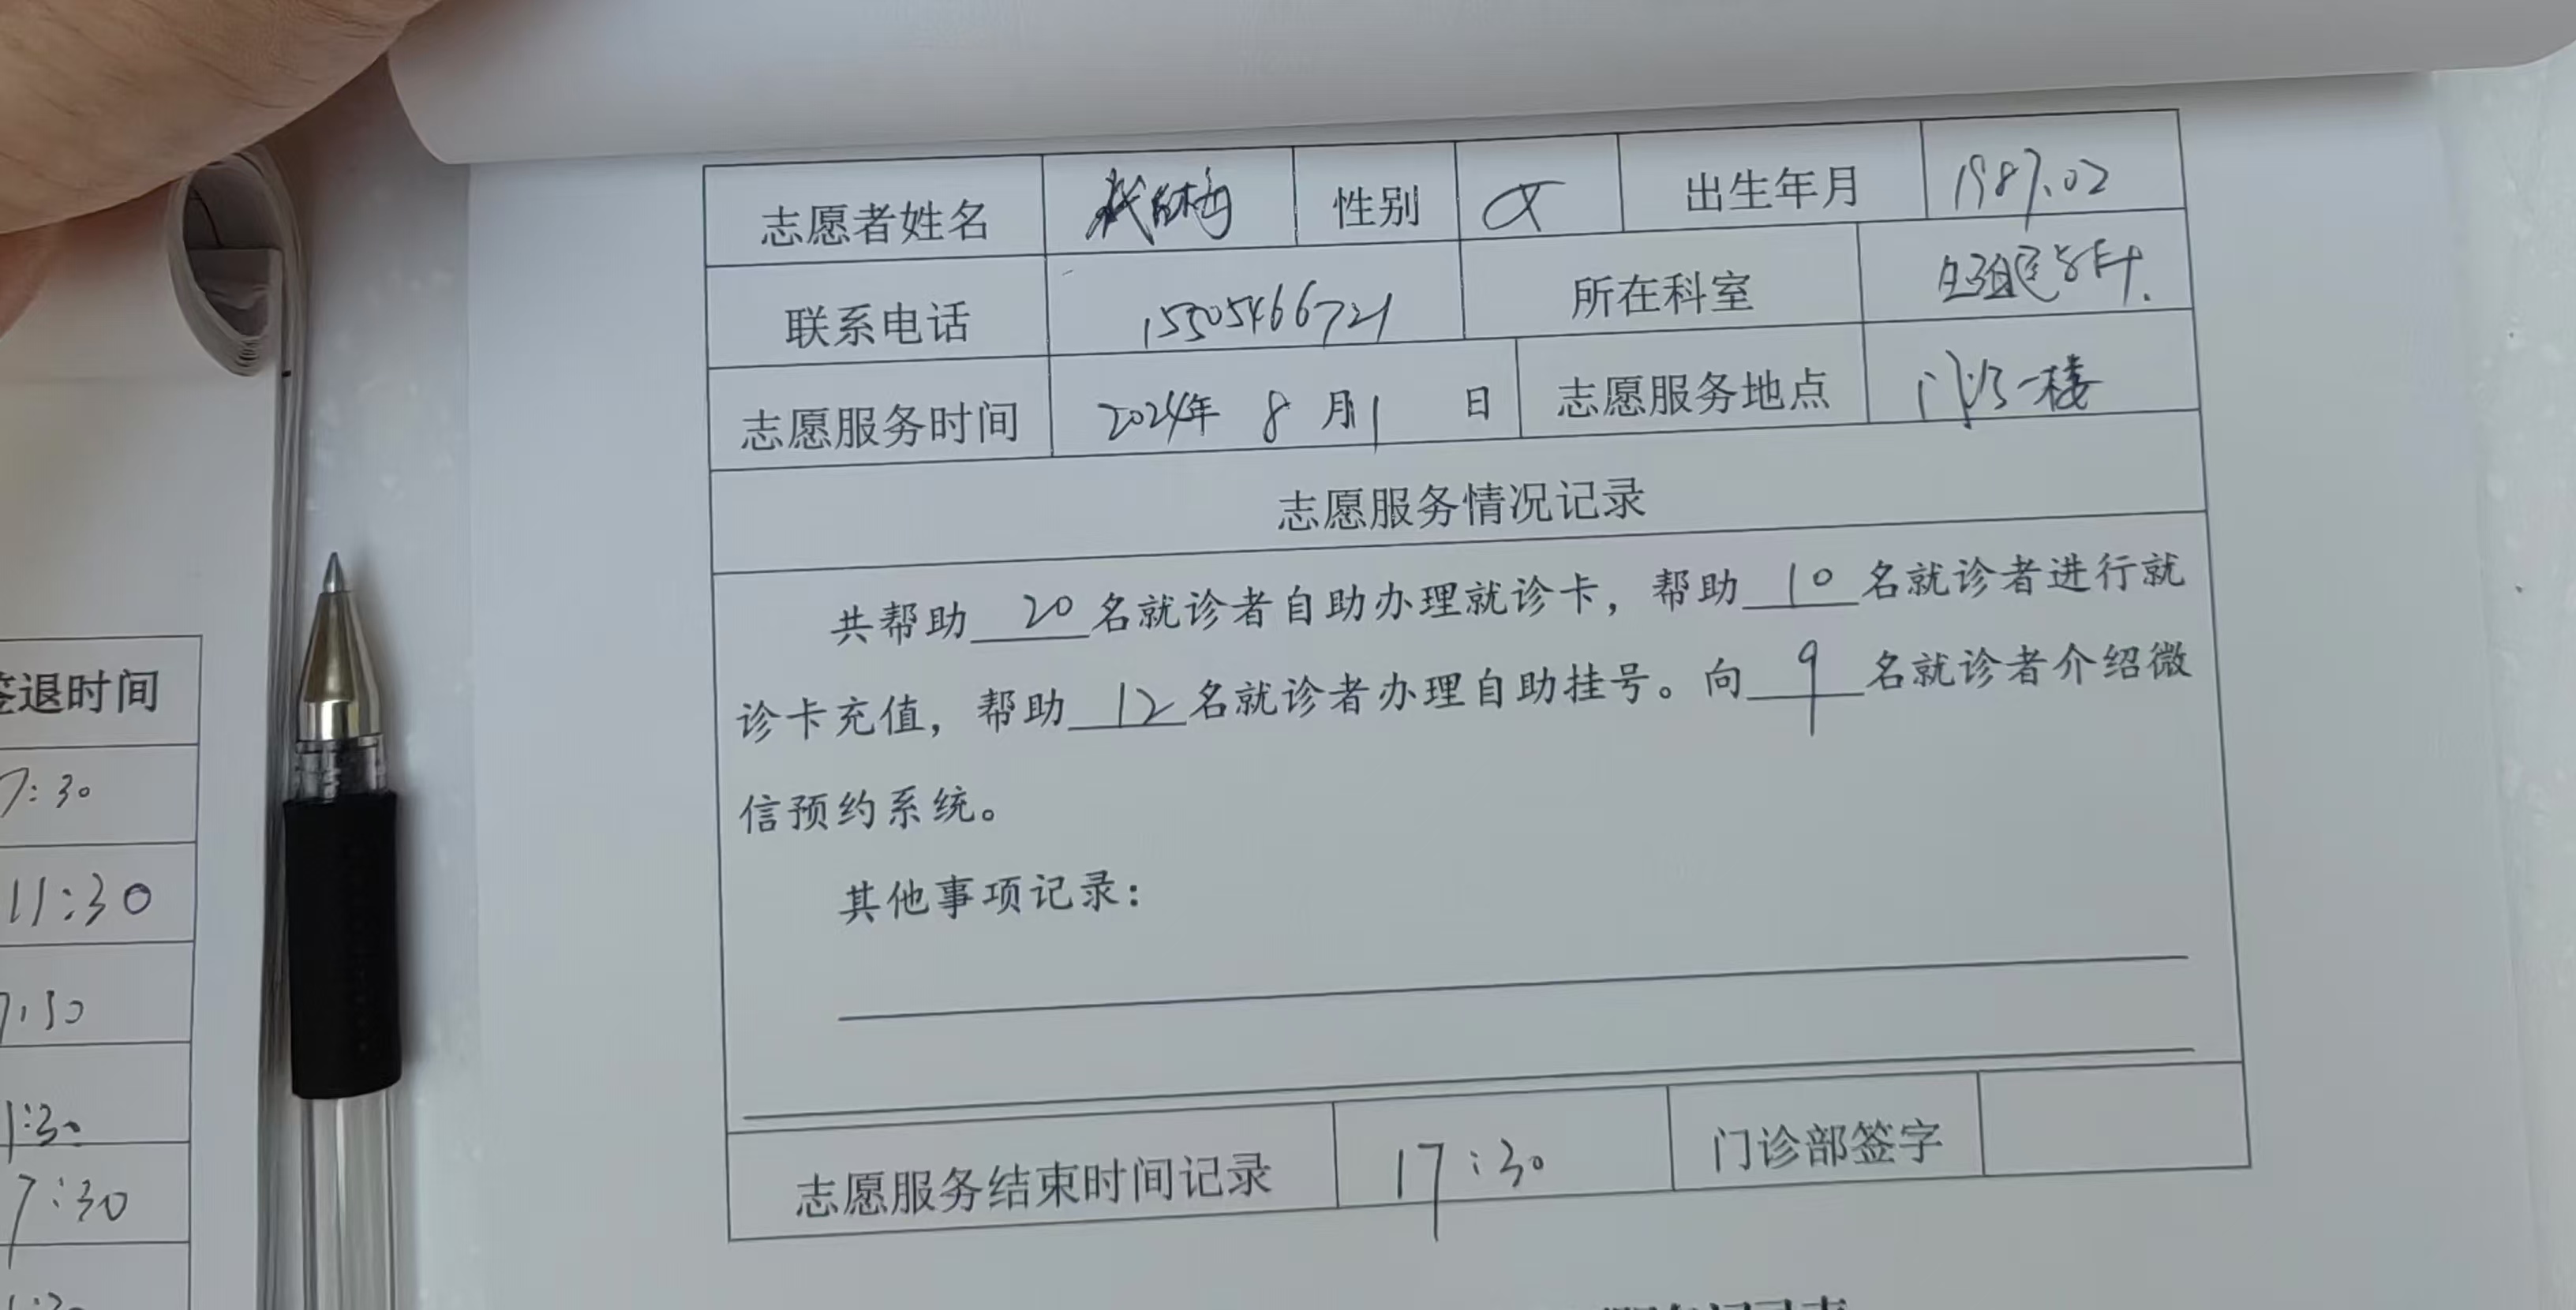 志愿者姓名 性别 女 出生年月 1987.02
联系电话 15505466721 所在科室
志愿服务时间 2024年 8 月 1 日 志愿服务地点 门诊一楼
志愿服务情况记录
共帮助 20 名就诊者自助办理就诊卡，帮助 10 名就诊者进行就
诊卡充值，帮助 12 名就诊者办理自助挂号。向 9 名就诊者介绍微
信预约系统。
其他事项记录：
志愿服务结束时间记录 17:30 门诊部签字
签退时间
7:30
11:30
7:30
1:30
7:30
1:30